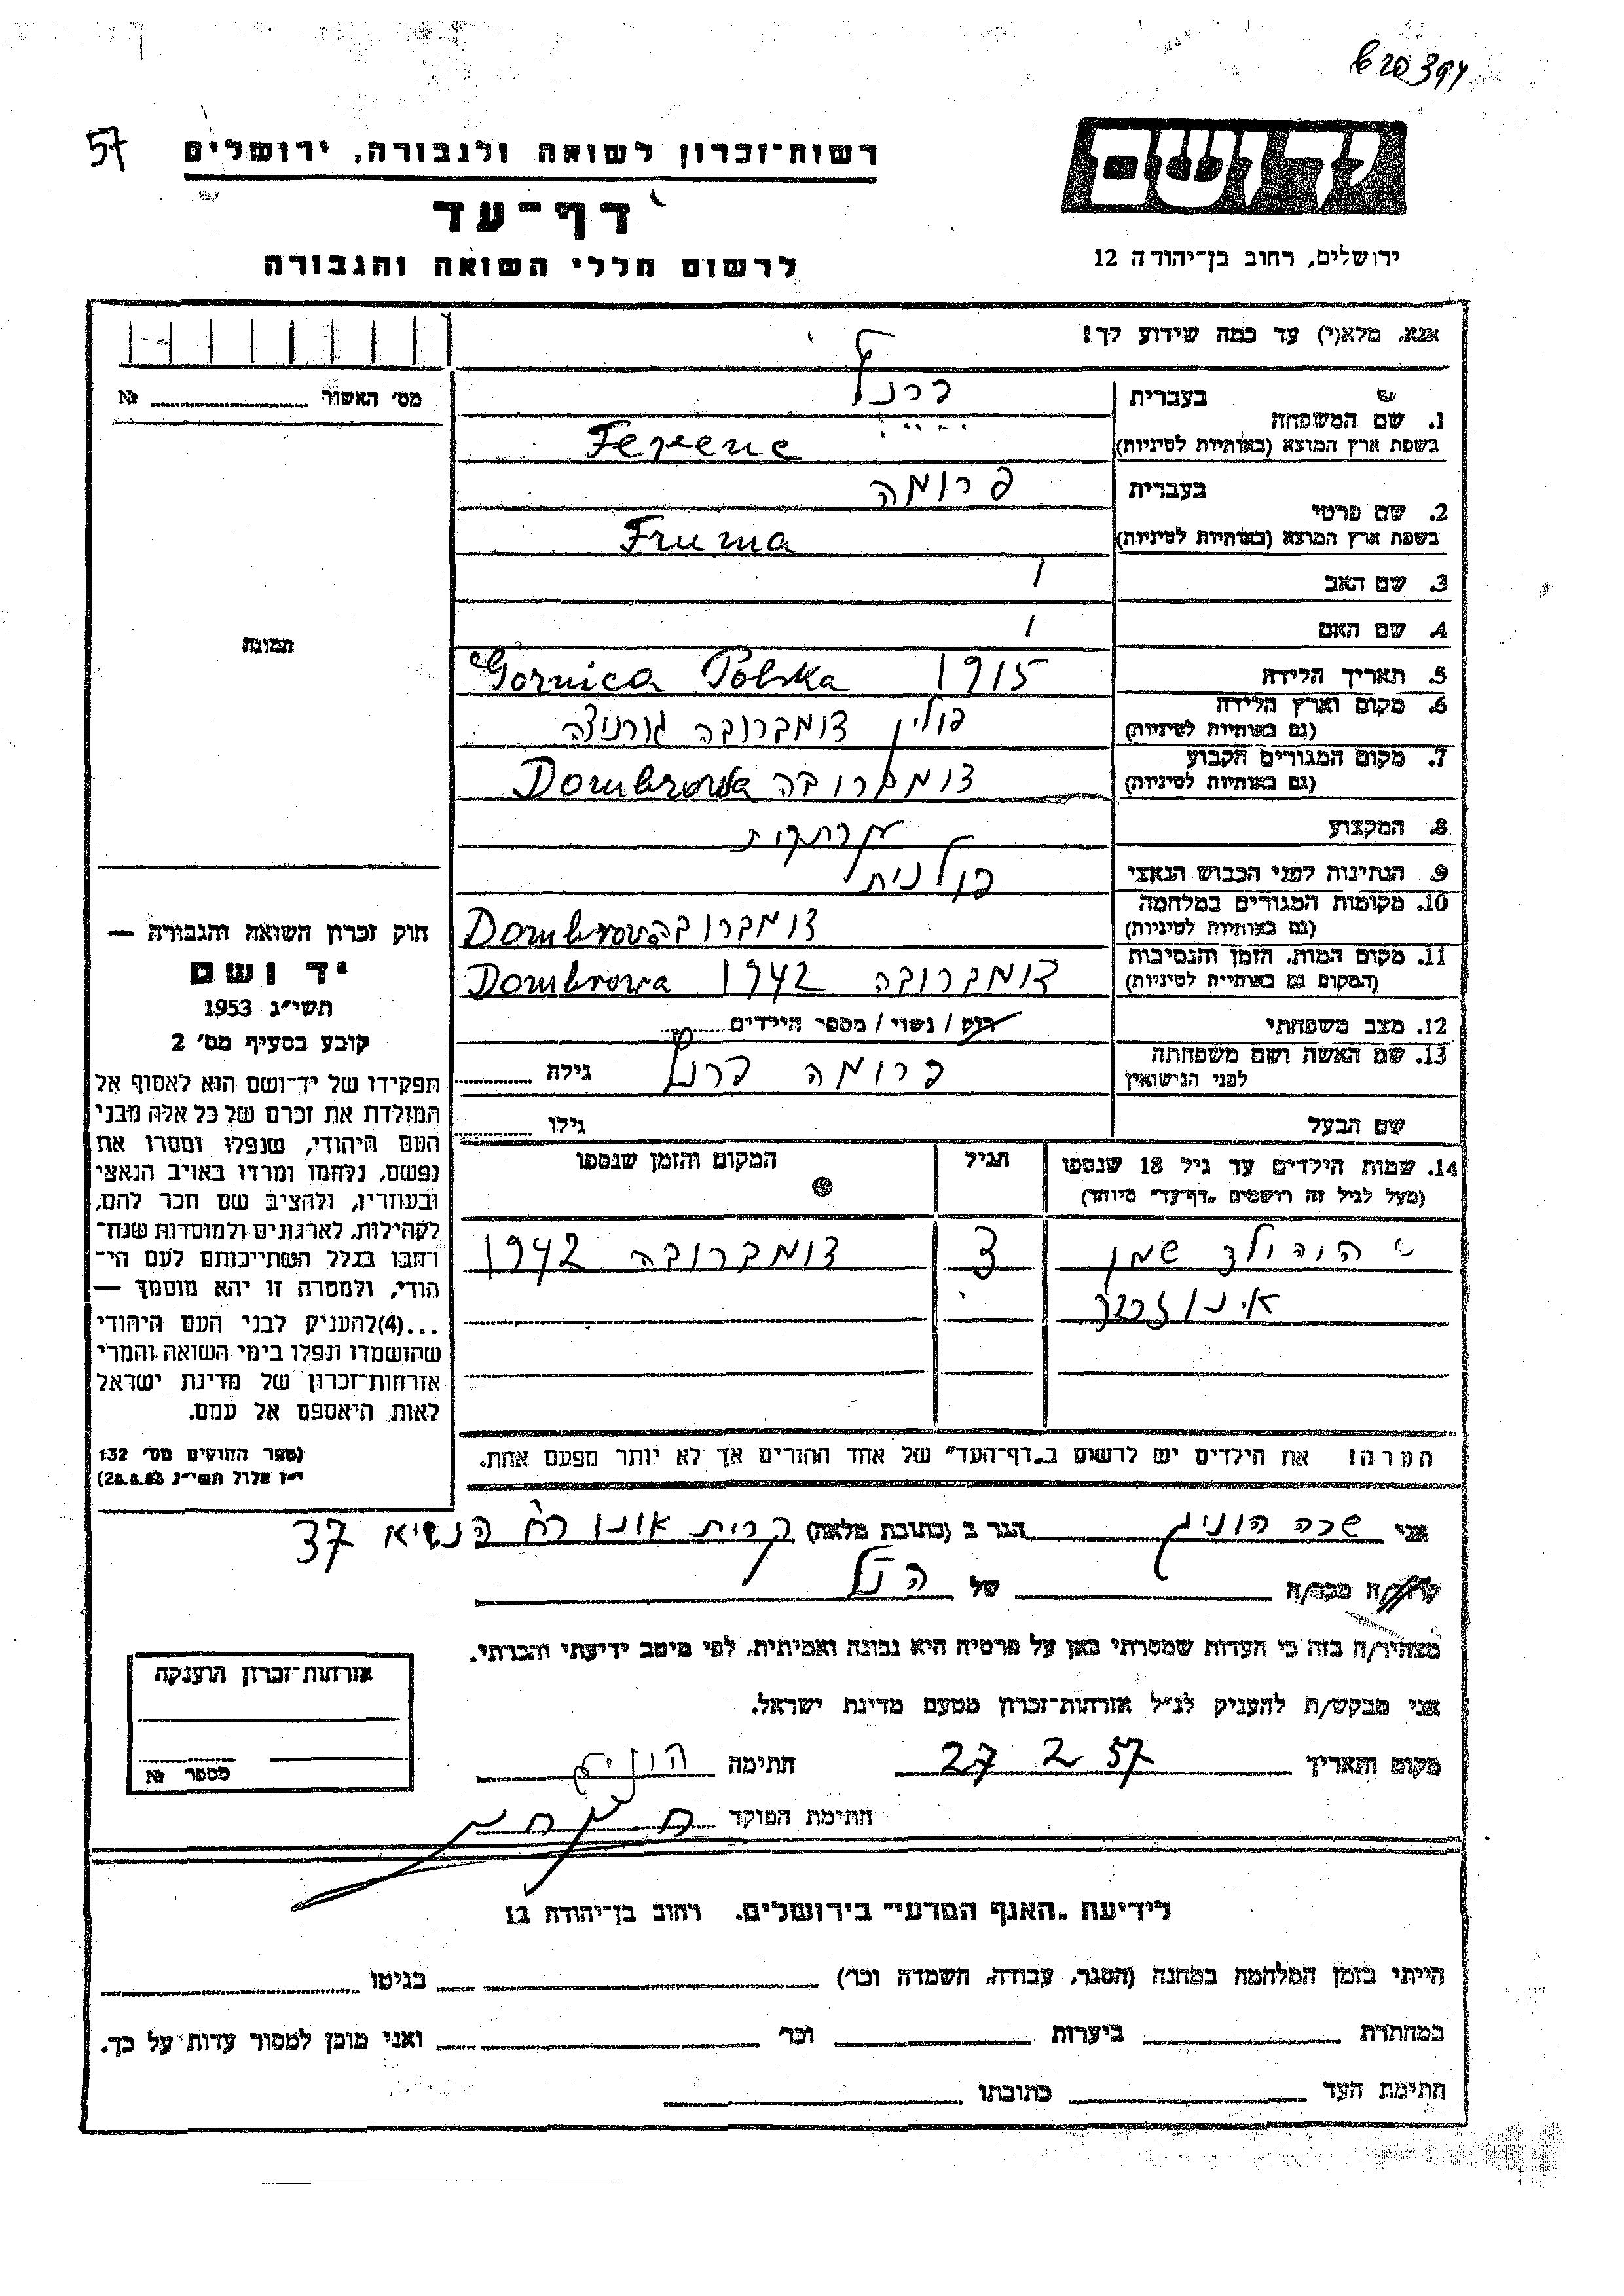 620394
57
יד ושם
רשות־זכרון לשואה ולגבורה, ירושלים
דף־עד
לרשום חללי השואה והגבורה
ירושלים, רחוב בן־יהודה 12
אנא, מלא(י) עד כמה שידוע לך!
מס׳ האשור № 
תמונה
1. שם המשפחה
בעברית
בשפת ארץ המוצא (באותיות לטיניות)
2. שם פרטי
בעברית פרומה
בשפת ארץ המוצא (באותיות לטיניות) Fruma
3. שם האב
4. שם האם
5. תאריך הלידה 1915 Gornica Polska
6. מקום וארץ הלידה
(גם באותיות לטיניות) פולין דומברובה גורניצה
7. מקום המגורים הקבוע
(גם באותיות לטיניות) דומברובה Dombrowa
8. המקצוע
9. הנתינות לפני הכבוש הנאצי פולנית
10. מקומות המגורים במלחמה
(גם באותיות לטיניות) דומברובה Dombrowa
11. מקום המות, הזמן והנסיבות
(המקום גם באותיות לטיניות) דומברובה 1942 Dombrowa
12. מצב משפחתי רווק / נשוי / מספר הילדים
13. שם האשה ושם משפחתה
לפני הנישואין פרומה גילה
שם הבעל גילו
14. שמות הילדים עד גיל 18 שנספו
(מעל לגיל זה רושמים „דף־עד״ מיוחד)
הגיל
המקום והזמן שנספו
3 דומברובה 1942
הערה! את הילדים יש לרשום ב„דף־העד״ של אחד ההורים אך לא יותר מפעם אחת.
חוק זכרון השואה והגבורה —
יד ושם
תשי״ג 1953
קובע בסעיף מס׳ 2
תפקידו של יד־ושם הוא לאסוף אל
המולדת את זכרם של כל אלה מבני
העם היהודי, שנפלו ומסרו את
נפשם, נלחמו ומרדו באויב הנאצי
ובעוזריו, ולהציב שם וזכר להם,
לקהילות, לארגונים ולמוסדות שנח־
רבו בגלל השתייכותם לעם הי־
הודי, ולמטרה זו יהא מוסמך —
...(4)להעניק לבני העם היהודי
שהושמדו ונפלו בימי השואה והמרי
אזרחות־זכרון של מדינת ישראל
לאות היאספם אל עמם.
(ספר החוקים מס׳ 132
י״ז אלול תשי״ג 28.8.53)
אני שרה הוניג הגר ב (כתובת מלאה) קרית אונו רח׳ הנשיא 37
קרוב/ה מכר/ה של הנ״ל
מצהיר/ה בזה כי העדות שמסרתי כאן על פרטיה היא נכונה ואמיתית, לפי מיטב ידיעתי והכרתי.
אני מבקש/ת להעניק לנ״ל אזרחות־זכרון מטעם מדינת ישראל.
מקום ותאריך 27 2 57 חתימה הוניג
חתימת הפוקד
אזרחות־זכרון הוענקה
מספר №
לידיעת „האגף המדעי״ בירושלים. רחוב בן־יהודה 12
הייתי בזמן המלחמה במחנה (הסגר, עבודה, השמדה וכו׳) בגיטו
במחתרת ביערות וכו׳ ואני מוכן למסור עדות על כך.
חתימת העד כתובתו